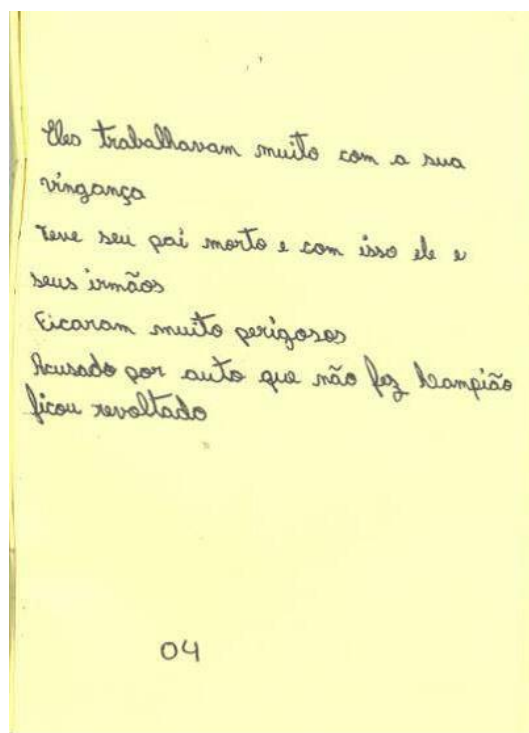 Eles trabalhavam muito com a sua
vingança
teve seu pai morto e com isso ele e
seus irmãos
Ficaram muito perigosos
Acusado por auto que não fez Lampião
ficou revoltado
04